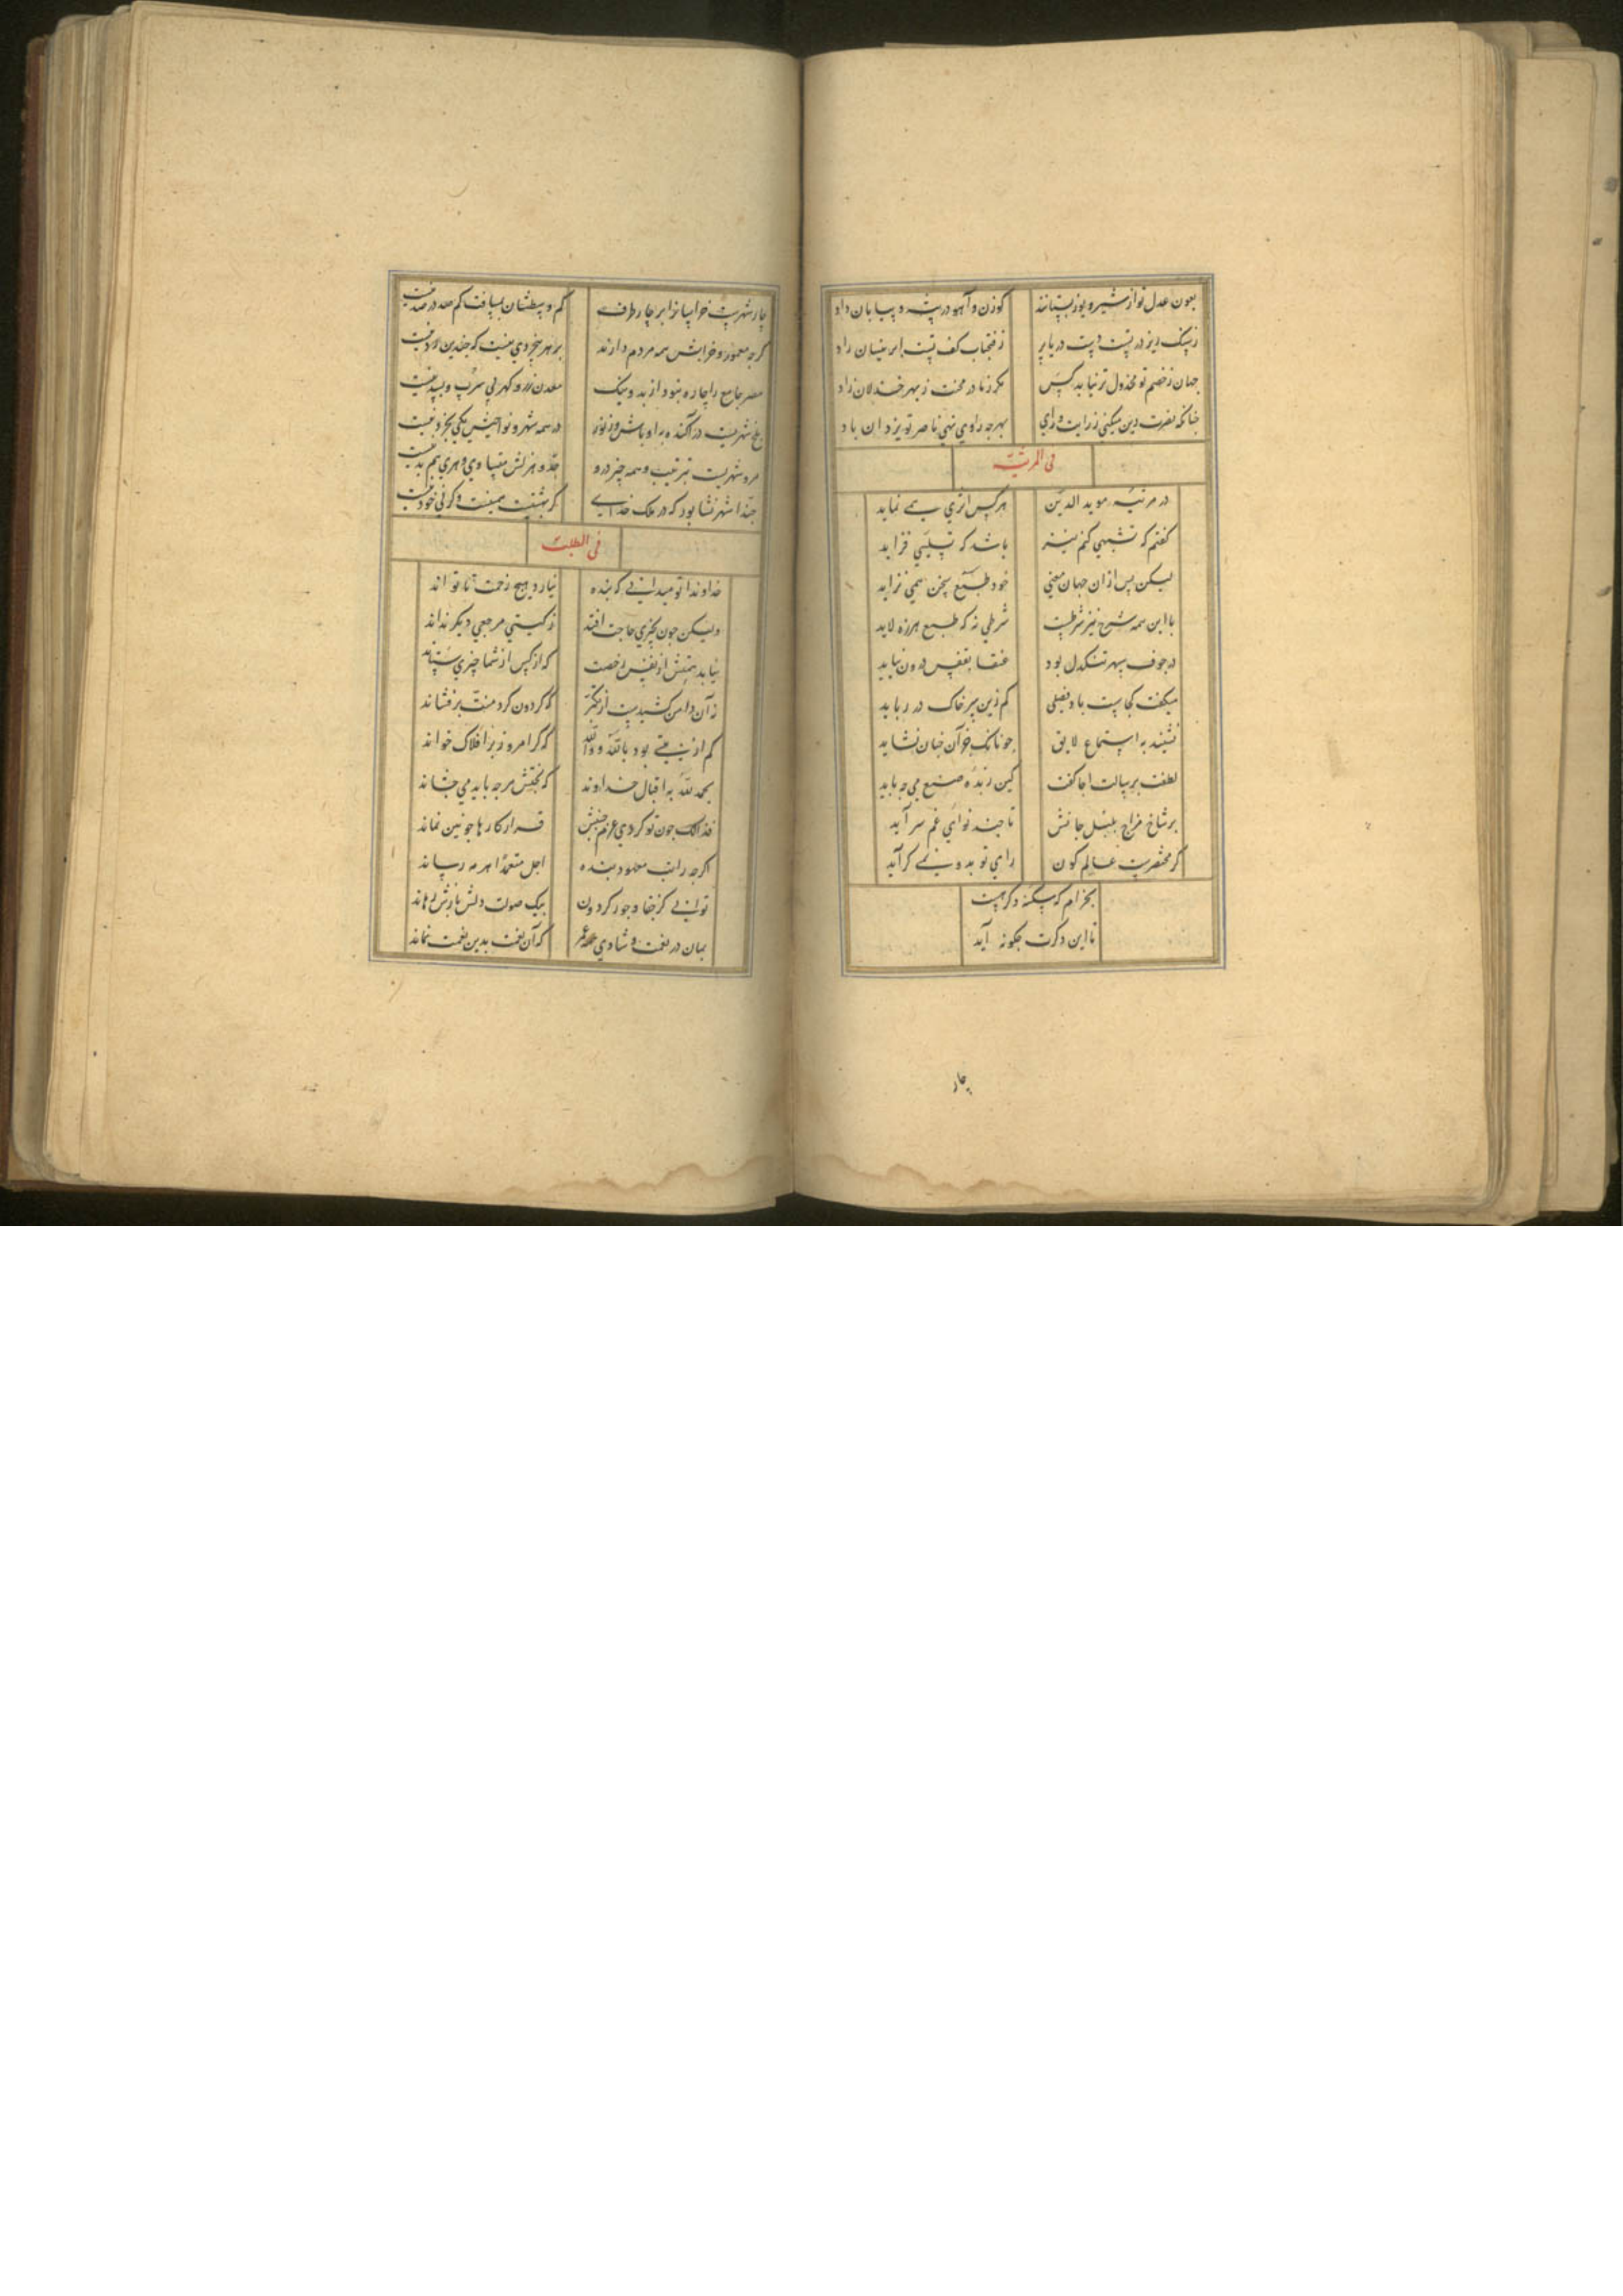 بعون عدل تو از شیر و یوز بستانند گوزن و آهو در بیشه و بیابان داد
جهان ز خصم تو مخذول تر نیابد کس مگر زمادر محنت ز بهر خذلان زاد
چنانکه نصرت دین میکنی ز رایت و رای بهرجه راوی نهی ناصر تو یزدان باد
فی المرثیة
در مرثیه موید الدین هرکس اثری همی نماید
گفتم که تشبهی کنم نیز باشد که تسلیی فزاید
لیکن پس از ان جهان معنی خود طبع سخن همی نزاید
با این همه شرح نیز شرطیست شرطی نه که طبع هرزه لاید
در جوف سپهر تنگدل بود عنقا بقفس درون نیاید
میگفت کجاست باد فضلی کم زین سر خاک در رباید
لطفت برسالت اجا گفت کین زبده صنع می چه باید
بر شاخ مزاج بلبل جانش تا چند نوای غم سراید
گر مختصریست عالم کون رای تو بدو نمی گراید
بخرام که سکنه دگر هست
تا این دگرت چگونه آید
چار
چار شهریست خراسانرا بر چار طرف که وسطشان بمسافت کم صد در صد نیست
گرچه معمور و خرابش همه مردم دارند بر هر بیخردی نیست که چندین دد نیست
مصر جامع را چاره نبود از بد و نیک معدن زر و گهر بی سرب و بسد نیست
بلخ شهریست در آکنده به اوباش و رنود در همه شهر و نواحیش یکی بخرد نیست
مرو شهریست بترتیب و همه چیز درو جد و هزلش متساوی و هری هم بد نیست
حبذا شهر نشابور که در ملک خدای گر بهشتیست همینست و گرنی خود نیست
فی الطلب
خداوندا تو میدانی که بنده نیارد هیچ زحمت تا تواند
ولیکن چون بچیزی حاجت افتد ز گیتی مرجعی دیگر نداند
نیابد همتش از نفس رخصت که از کس از شما چیزی ستاند
از آن دامن کشیدست از تکبر که گردون گرد منت بر فشاند
که گر امروز بر افلاک خواند
بحمد لله به اقبال خداوند که بختش هرچه باید می چشاند
فذالک چون تو کردی عزم جنبش قرار کارها چونین نماند
توانی کز جفا و جور گردون بیک صولت دلش بازش رهاند
بمان در نعمت و شادی همه عمر که آن نعمت بدین نعمت نماند